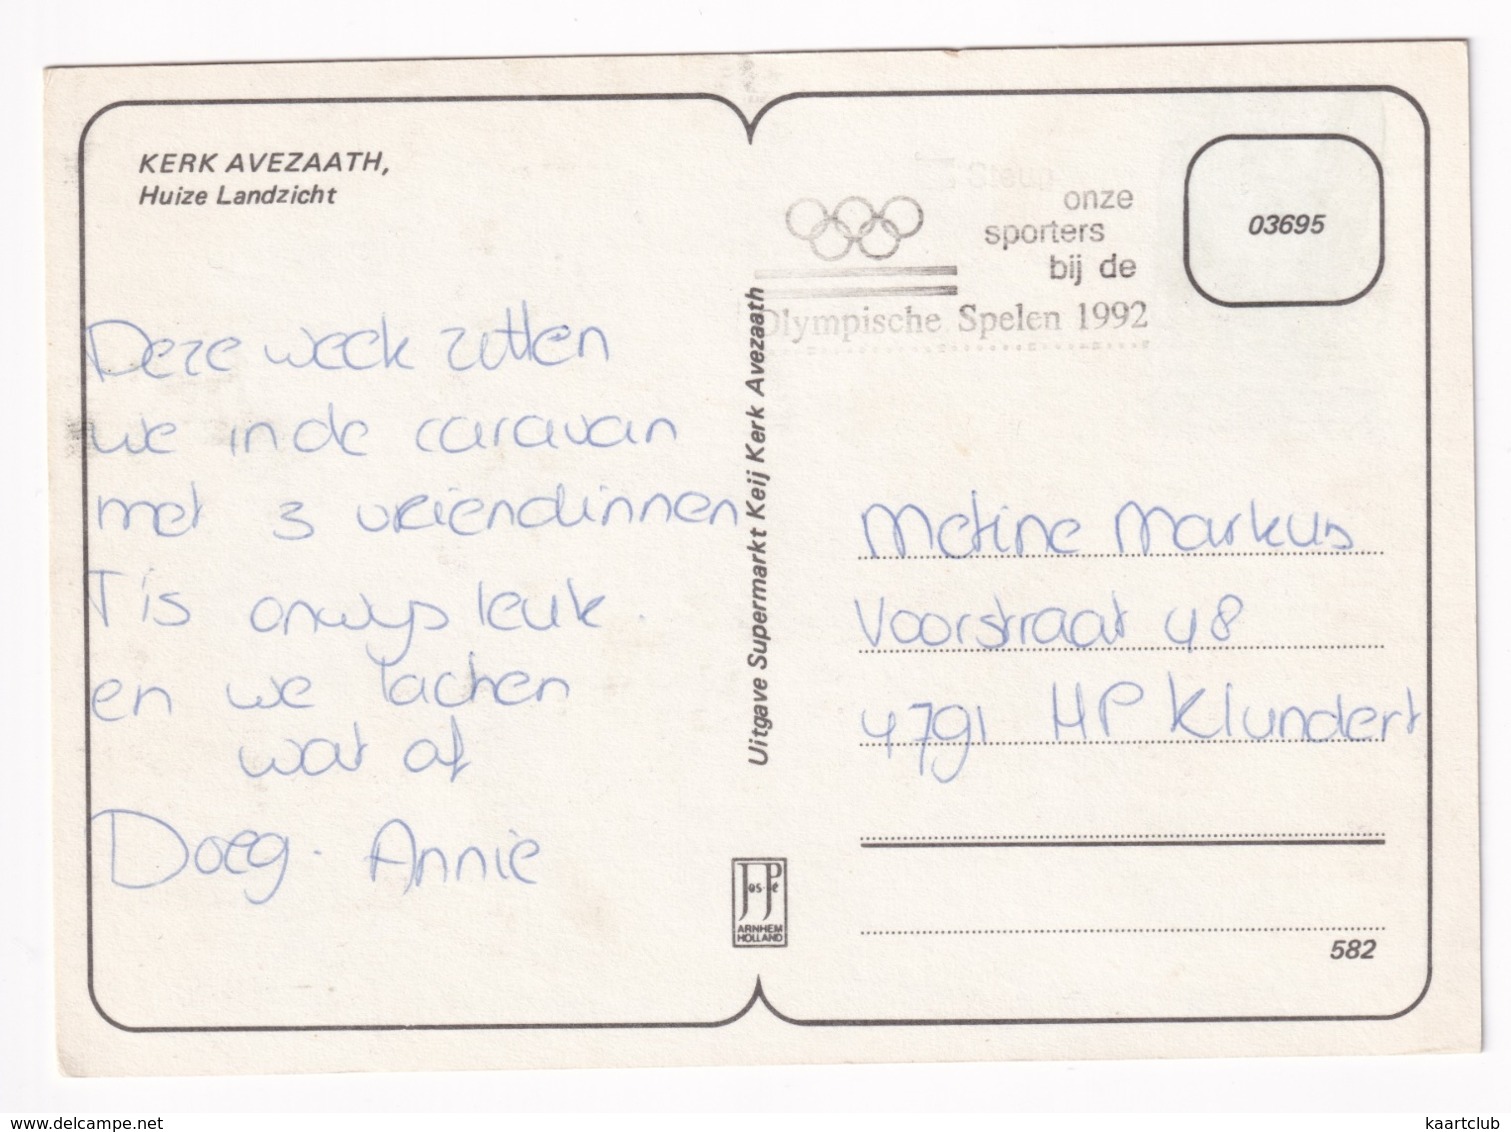 KERK AVEZAATH,
Huize Landzicht
Deze week zitten
we in de caravan
met 3 vriendinnen
T is onwijs leuk.
en we lachen
wat af
Doeg. Annie
Uitgave Supermarkt Keij Kerk Avezaath
Steun
onze
sporters
bij de
Olympische Spelen 1992
03695
Metine Markus
Voorstraat 48
4791 HP Klundert
Jos-Pé
ARNHEM
HOLLAND
582
www.delcampe.net
kaartclub